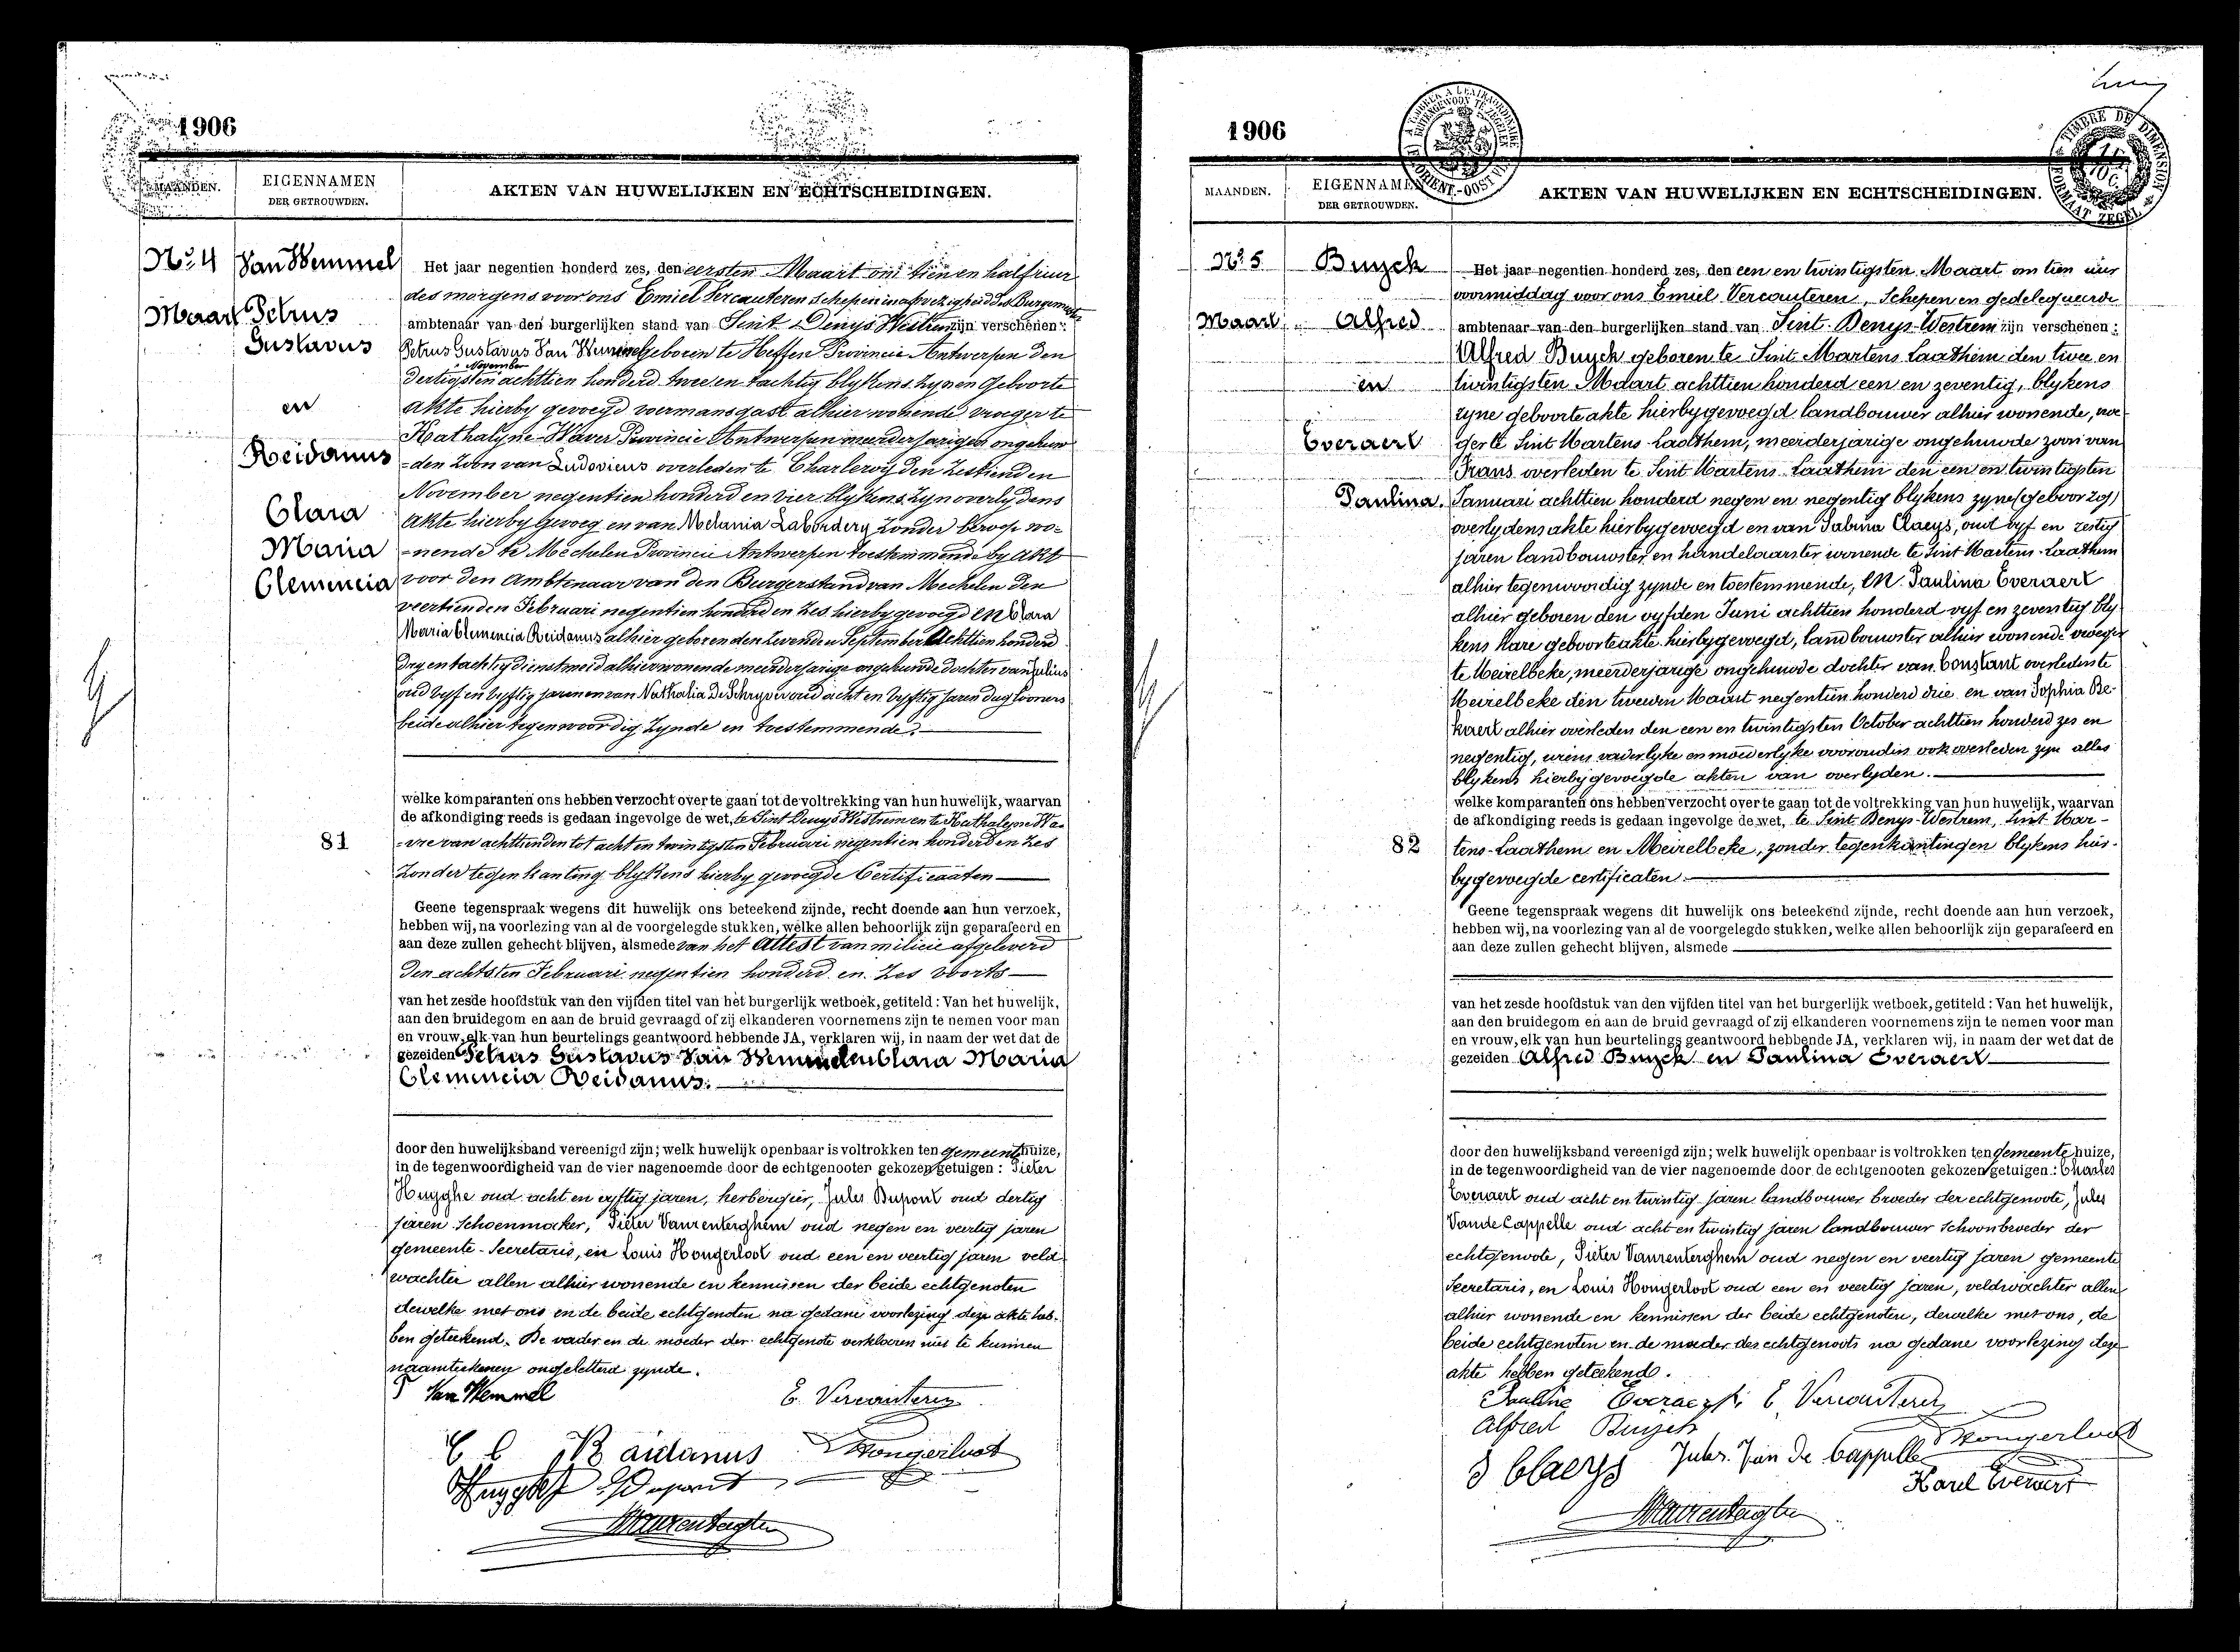 1906
MAANDEN.
EIGENNAMEN
DER GETROUWDEN.
AKTEN VAN HUWELIJKEN EN ECHTSCHEIDINGEN.
No. 4
Maart
Van Wemmel
Petrus
Gustavus
en
Reidanus
Clara
Maria
Clemencia
Het jaar negentien honderd zes, den eersten Maart om tien en half uur
des morgens voor ons Emiel Vercauteren Schepen in afwezigheid des Burgemeester
ambtenaar van den burgerlijken stand van Sint Denys Westrem zijn verschenen:
Petrus Gustavus Van Wemmel geboren te Heffen Provincie Antwerpen den
dertigsten November achttien honderd twee en tachtig blykens zynen geboorte
akte hierby gevoegd voermansgast alhier wonende vroeger te
Kathalyne-Waver Provincie Antwerpen meerderjarigen ongehuw-
-den zoon van Ludovicus overleden te Charleroy den zestienden
November negentien honderd en vier blykens zyn overlydens
akte hierby gevoeg en van Melania Labordery zonder beroep wo-
-nende te Mechelen Provincie Antwerpen toestemmende by akt
voor den Ambtenaar van den Burgerstand van Mechelen den
veertienden Februari negentien honderd en zes hierby gevoegd EN Clara
Maria Clemencia Reidanus alhier geboren den September Achttien honderd
dry en tachtig dienstmeid alhier wonende meerderjarige ongehuwde dochter van Julius
oud vyf en vyftig jaren en van Nathalia De Schryver oud acht en vyftig jaren daglooners
beide alhier tegenwoordig zynde en toestemmende.
welke komparanten ons hebben verzocht over te gaan tot de voltrekking van hun huwelijk, waarvan
de afkondiging reeds is gedaan ingevolge de wet, te Sint Denys Westrem en te Kathalyne Wa-
81
-vre van achttienden tot acht en twintigsten Februari negentien honderd en zes
zonder tegenkanting blykens hierby gevoegde Certificaäten
Geene tegenspraak wegens dit huwelijk ons beteekend zijnde, recht doende aan hun verzoek,
hebben wij, na voorlezing van al de voorgelegde stukken, welke allen behoorlijk zijn geparafeerd en
aan deze zullen gehecht blijven, alsmede van het Attest van milicie afgeleverd
den achtsten Februari negentien honderd en zes voorts
van het zesde hoofdstuk van den vijfden titel van het burgerlijk wetboek, getiteld: Van het huwelijk,
aan den bruidegom en aan de bruid gevraagd of zij elkanderen voornemens zijn te nemen voor man
en vrouw, elk van hun beurtelings geantwoord hebbende JA, verklaren wij, in naam der wet dat de
gezeiden Petrus Gustavus Van Wemmel en Clara Maria
Clemencia Reidanus.
door den huwelijksband vereenigd zijn; welk huwelijk openbaar is voltrokken ten gemeentehuize,
in de tegenwoordigheid van de vier nagenoemde door de echtgenooten gekozen getuigen: Pieter
Huyghe oud acht en vyftig jaren, herbergier, Jules Dupont oud dertig
jaren Schoenmaker, Pieter Vanrenterghem oud negen en veertig jaren
gemeente-Secretaris, en Louis Hongerloot oud een en veertig jaren veld-
wachter allen alhier wonende en kennissen der beide echtgenoten
dewelke met ons en de beide echtgenoten na gedane voorlezing deze akte heb-
ben geteekend. De vader en de moeder der echtgenote verklaren niet te kunnen
naamteekenen ongeletterd zynde.
Van Wemmel
E. Vercauteren
C C M Raidanus
Hongerloot
Huyghe J Dupont
Vanrenterghem
1906
MAANDEN.
EIGENNAMEN
DER GETROUWDEN.
AKTEN VAN HUWELIJKEN EN ECHTSCHEIDINGEN.
TIMBRE DE DIMENSION
FORMAAT ZEGEL
No. 5
Maart
Buyck
Alfred
en
Everaert
Paulina.
Het jaar negentien honderd zes, den een en twintigsten Maart om tien uur
voormiddag voor ons Emiel Vercauteren, Schepen en gedelegueerde
ambtenaar van den burgerlijken stand van Sint-Denys-Westrem zijn verschenen:
Alfred Buyck geboren te Sint Martens Laathem den twee en
twintigsten Maart achttien honderd een en zeventig, blykens
zyne geboorteakte hierbygevoegd landbouwer alhier wonende, vroe-
ger te Sint Martens-Laathem, meerderjarige ongehuwde zoon van
Frans overleden te Sint Martens-Laathem den een en twintigsten
Januari achttien honderd negen en negentig blykens zyne (geboorzeg)
overlydensakte hierbygevoegd en van Sabina Claeys, oud vyf en zestig
jaren landbouwster en handelaarster wonende te Sint Martens-Laathem
alhier tegenwoordig zynde en toestemmende, EN Paulina Everaert
alhier geboren den vyfden Juni achttien honderd vyf en zeventig bly-
kens hare geboorteakte hierbygevoegd, landbouwster alhier wonende vroeger
te Meirelbeke, meerderjarige ongehuwde dochter van Constant overleden te
Meirelbeke den tweeden Maart negentien honderd drie en van Sophia Be-
kaert alhier overleden den een en twintigsten October achttien honderd zes en
negentig, wiens vaderlyke en moederlyke voorouders ook overleden zyn alles
blykens hierbygevoegde akten van overlyden.
welke komparanten ons hebben verzocht over te gaan tot de voltrekking van hun huwelijk, waarvan
de afkondiging reeds is gedaan ingevolge de wet, te Sint Denys-Westrem, Sint Mar-
82
tens-Laathem en Meirelbeke, zonder tegenkantingen blykens hier-
bygevoegde certificaten.
Geene tegenspraak wegens dit huwelijk ons beteekend zijnde, recht doende aan hun verzoek,
hebben wij, na voorlezing van al de voorgelegde stukken, welke allen behoorlijk zijn geparafeerd en
aan deze zullen gehecht blijven, alsmede
van het zesde hoofdstuk van den vijfden titel van het burgerlijk wetboek, getiteld: Van het huwelijk,
aan den bruidegom en aan de bruid gevraagd of zij elkanderen voornemens zijn te nemen voor man
en vrouw, elk van hun beurtelings geantwoord hebbende JA, verklaren wij, in naam der wet dat de
gezeiden Alfred Buyck en Paulina Everaert
door den huwelijksband vereenigd zijn; welk huwelijk openbaar is voltrokken ten gemeente huize,
in de tegenwoordigheid van de vier nagenoemde door de echtgenooten gekozen getuigen: Charles
Everaert oud acht en twintig jaren landbouwer broeder der echtgenoote, Jules
Vande Cappelle oud acht en twintig jaren landbouwer schoonbroeder der
echtgenoote, Pieter Vanrenterghem oud negen en veertig jaren gemeente
Secretaris, en Louis Hongerloot oud een en veertig jaren, veldwachter allen
alhier wonende en kennissen der beide echtgenoten, dewelke met ons, de
beide echtgenoten en de moeder des echtgenoots na gedane voorlezing deze
akte hebben geteekend.
Pauline Everaert E Vercauteren
Alfred Buyck
Hongerloot
S Claeys Jules Van De Cappelle
Karel Everaert
Vanrenterghem